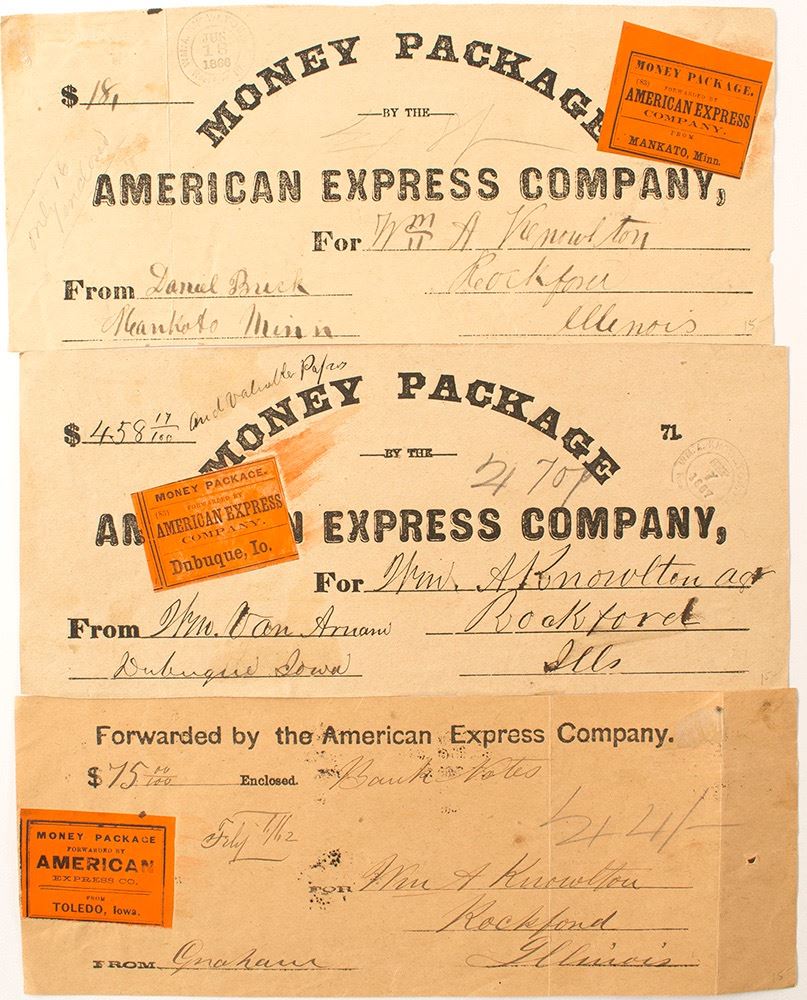 JUN
18
1866
MONEY PACKAGE
$ 18,
BY THE
MONEY PACKAGE,
(83) FORWARDED BY
AMERICAN EXPRESS
COMPANY.
FROM
MANKATO, Minn.
only 18
AMERICAN EXPRESS COMPANY,
For Wm A Knowlton
From Daniel Buck Rockford
Mankato Minn Illenois
15
and valuable Papers
MONEY PACKAGE
$ 458 17/100
71.
BY THE
470
MONEY PACKAGE.
(83) FORWARDED BY
AMERICAN EXPRESS
COMPANY.
Dubuque, Io.
AN EXPRESS COMPANY,
For Wm. A Knowlton agt
From Wm. Van Arnam Rockford
Dubuque Iowa Ills
15
Forwarded by the American Express Company.
$ 75 00/100 Enclosed. Bank Notes
MONEY PACKAGE
FORWARDED BY
AMERICAN
EXPRESS CO.
FROM
TOLEDO, Iowa.
FOR Wm A Knowlton
Rockford
FROM Graham Illinois
15